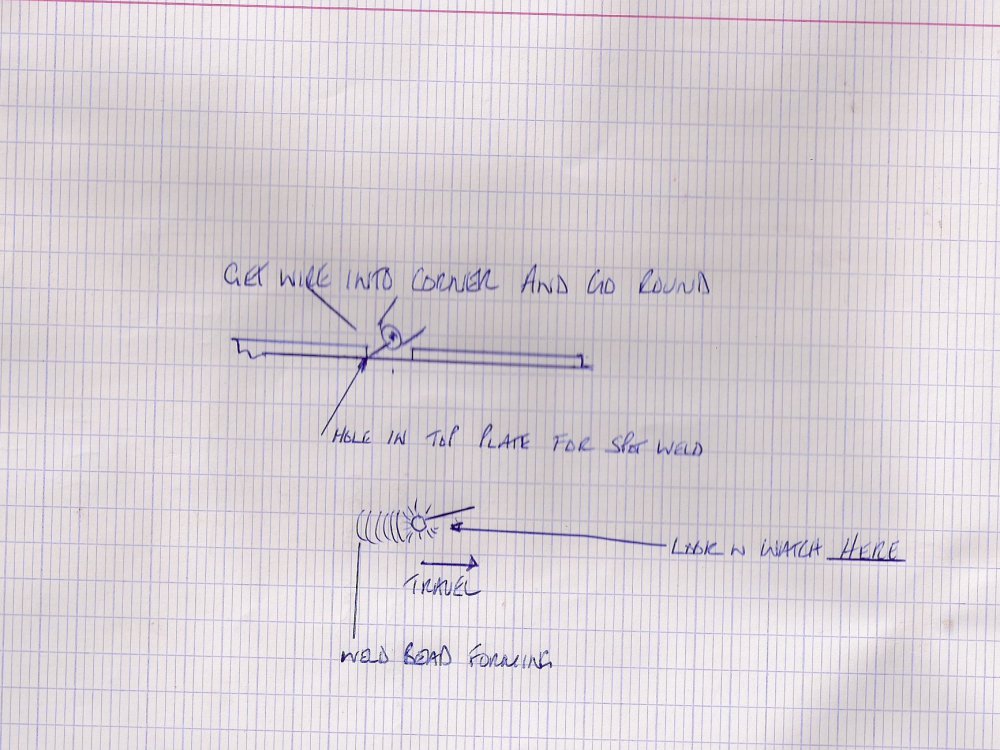 GET WIRE INTO CORNER AND GO ROUND
HOLE IN TOP PLATE FOR SPOT WELD
LOOK N WATCH HERE
TRAVEL
WELD BEAD FORMING